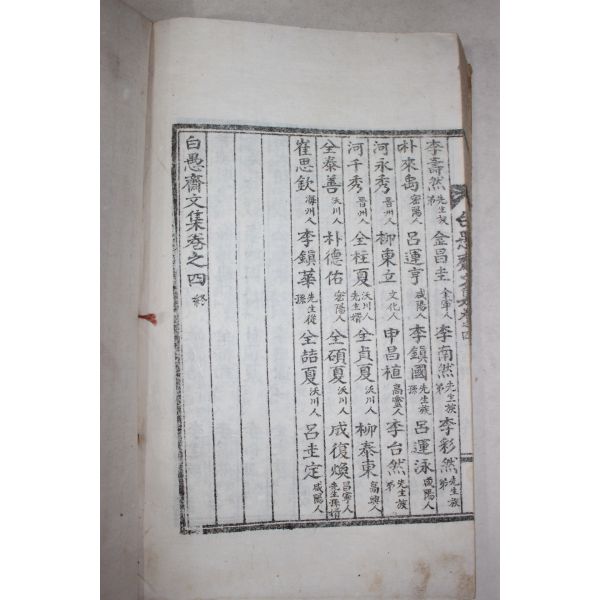 白愚齋文集卷之四
李壽然 先生族弟 金昌圭 金寧人 李南然 先生族弟 李彩然 先生族弟
朴來禹 密陽人 呂運亨 咸陽人 李鎭國 先生族孫 呂運泳 咸陽人
河永秀 晋州人 柳東立 文化人 申昌植 高靈人 李台然 先生族弟
河千秀 晋州人 全柱夏 沃川人 先生壻 全貞夏 沃川人 柳泰東 高興人
全泰善 沃川人 朴德佑 密陽人 全碩夏 沃川人 成復煥 昌寧人 先生孫壻
崔思欽 海州人 李鎭華 先生從孫 全喆夏 沃川人 呂圭定 咸陽人
白愚齋文集卷之四 終